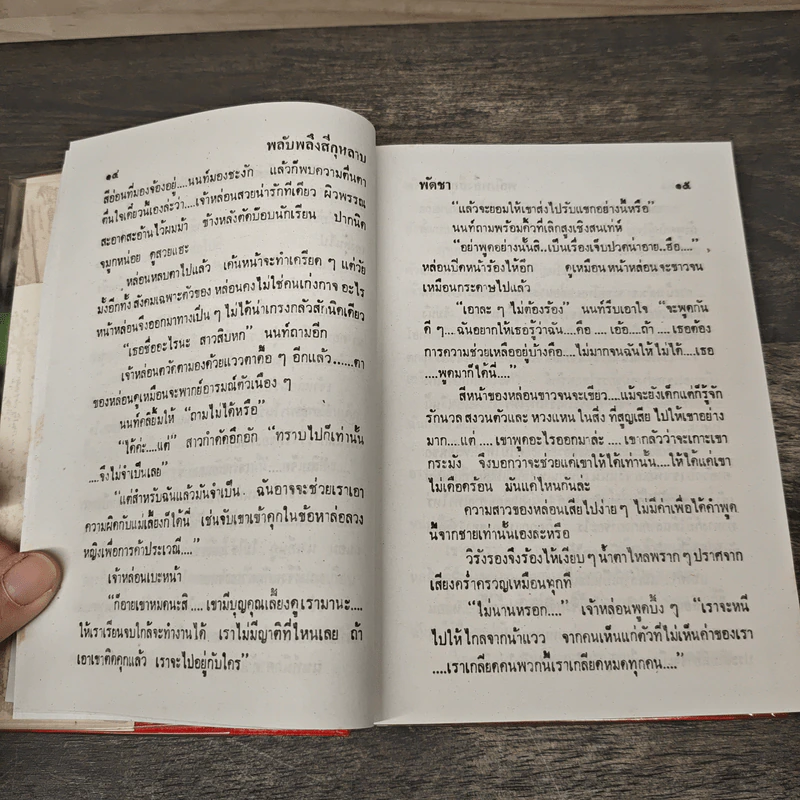 ๑๔
พลับพลึงสีกุหลาบ
สีอ่อนที่มองจ้องอยู่....นนท์มองชะงัก แล้วก็พบความตื่นตา
ตื่นใจเดี๋ยวนี้เองล่ะว่า....เจ้าหล่อนสวยน่ารักทีเดียว ผิวพรรณ
สะอาดสะอ้านไว้ผมม้า ข้างหลังตัดบ๊อบนักเรียน ปากนิด
จมูกหน่อย ดูสวยแฮะ
หล่อนหลบตาไปแล้ว เค้นหน้าจะทำเครียด ๆ แต่วัย
มั้งอีกทั้งสังคมเฉพาะตัวของ หล่อนคงไม่ใช่คนเก่งกาจ อะไร
หน้าหล่อนจึงออกมาทางเป็น ๆ ไม่ได้น่าเกรงกลัวสักนิดเดียว
“เธอชื่ออะไรนะ สาวสิบหก” นนท์ถามอีก
เจ้าหล่อนตวัดตามองด้วยแววตาดื้อ ๆ อีกแล้ว......ตา
ของหล่อนดูเหมือนจะพากย์อารมณ์ตัวเนื่อง ๆ
นนท์คลี่ยิ้มให้ “ถามไม่ได้หรือ”
“ได้ค่ะ....แต่” สาวกำดัดอึกอัก “ทราบไปก็เท่านั้น
....จึงไม่จำเป็นเลย”
“แต่สำหรับฉันแล้วมันจำเป็น ฉันอาจจะช่วยเราเอา
ความผิดกับแม่เลี้ยงก็ได้นี่ เช่นจับเขาเข้าคุกในข้อหาล่อลวง
หญิงเพื่อการค้าประเวณี....”
เจ้าหล่อนเบะหน้า
“ก็อายเขาหมดนะสิ .... เขามีบุญคุณเลี้ยงดูเรามานะ....
ให้เราเรียนจบใกล้จะทำงานได้ เราไม่มีญาติที่ไหนเลย ถ้า
เอาเขาติดคุกแล้ว เราจะไปอยู่กับใคร”
พัดชา
๑๕
“แล้วจะยอมให้เขาส่งไปรับแขกอย่างนี้หรือ”
นนท์ถามพร้อมคิ้วที่เลิกสูงเชิงสนเท่ห์
“อย่าพูดอย่างนั้นสิ..เป็นเรื่องเจ็บปวดน่าอาย..ฮือ....”
หล่อนปิดหน้าร้องไห้อีก ดูเหมือนหน้าหล่อนจะขาวจน
เหมือนกระดาษไปแล้ว
“เอาละ ๆ ไม่ต้องร้อง” นนท์รีบเอาใจ “จะพูดกัน
ดี ๆ....ฉันอยากให้เธอรู้ว่าฉัน....คือ .... เอ้อ....ถ้า .... เธอต้อง
การความช่วยเหลืออยู่บ้างคือ....ไม่มากจนฉันให้ไม่ได้....เธอ
....พูดมาก็ได้นี่....”
สีหน้าของหล่อนขาวจนจะเขียว....แม้จะยังเด็กแต่ก็รู้จัก
รักนวลสงวนตัวและ หวงแหน ในสิ่ง ที่สูญเสีย ไปให้เขาอย่าง
มาก....แต่ .... เขาพูดอะไรออกมาล่ะ .... เขากลัวว่าจะเกาะเขา
กระมัง จึงบอกว่าจะช่วยแค่เขาให้ได้เท่านั้น....ให้ได้แค่เขา
ไม่เดือดร้อน มันแค่ไหนกันล่ะ
ความสาวของหล่อนเสียไปง่าย ๆ ไม่มีค่าเพื่อได้คำพูด
นี้จากชายเท่านั้นเองละหรือ
วิรังรองจึงร้องไห้เงียบ ๆ น้ำตาไหลพราก ๆ ปราศจาก
เสียงคร่ำครวญเหมือนทุกที
“ไม่นานหรอก....” เจ้าหล่อนพูดปึ่ง ๆ “เราจะหนี
ไปให้ไกลจากน้าแวว จากคนเห็นแก่ตัวที่ไม่เห็นค่าของเรา
....เราเกลียดคนพวกนี้เราเกลียดหมดทุกคน....”